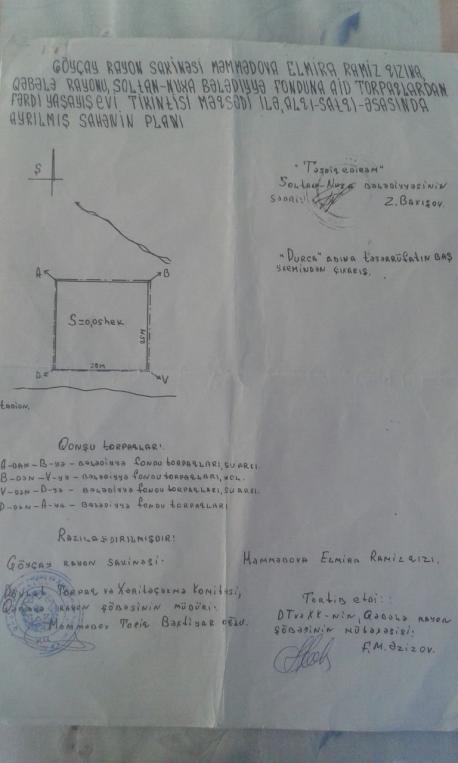 GÖYÇAY RAYON SAKİNƏSİ MƏMMƏDOVA ELMİRA RAMİZ QIZINA,
QƏBƏLƏ RAYONU, SOLTAN-NUXA BƏLƏDİYYƏ FONDUNA AİD TORPAQLARDAN
FƏRDİ YAŞAYIŞ EVİ TİKİNTİSİ MƏQSƏDİ İLƏ, ALQI-SATQI-ƏSASINDA
AYRILMIŞ SAHƏNİN PLANI
Ş
"Təsdiq edirəm"
Soltan-Nuxa bələdiyyəsinin
sədri:
Z. Baxışov.
"Durca" adına təsərrüfatın baş
çıxarış.
A
B
S=0,05hek
25M
20M
D
V
Qonşu torpaqları:
A-dan-B-yə - bələdiyyə fondu torpaqları,
B-dən-V-yə - bələdiyyə fondu torpaqları, yol.
V-dən-D-yə - bələdiyyə fondu torpaqları,
D-dən-A-ya - bələdiyyə fondu torpaqları
Razılaşdırılmışdır:
Göyçay rayon sakinəsi:
Məmmədova Elmira Ramiz qızı.
Dövlət Torpaq və Xəritəçəkmə Komitəsi,
Qəbələ rayon şöbəsinin müdürü:
Məmmədov Tofiq Bəxtiyar oğlu.
Tərtib etdi:
DTvəXK-nin, Qəbələ rayon
şöbəsinin mütəxəssisi:
F.M. Əzizov.